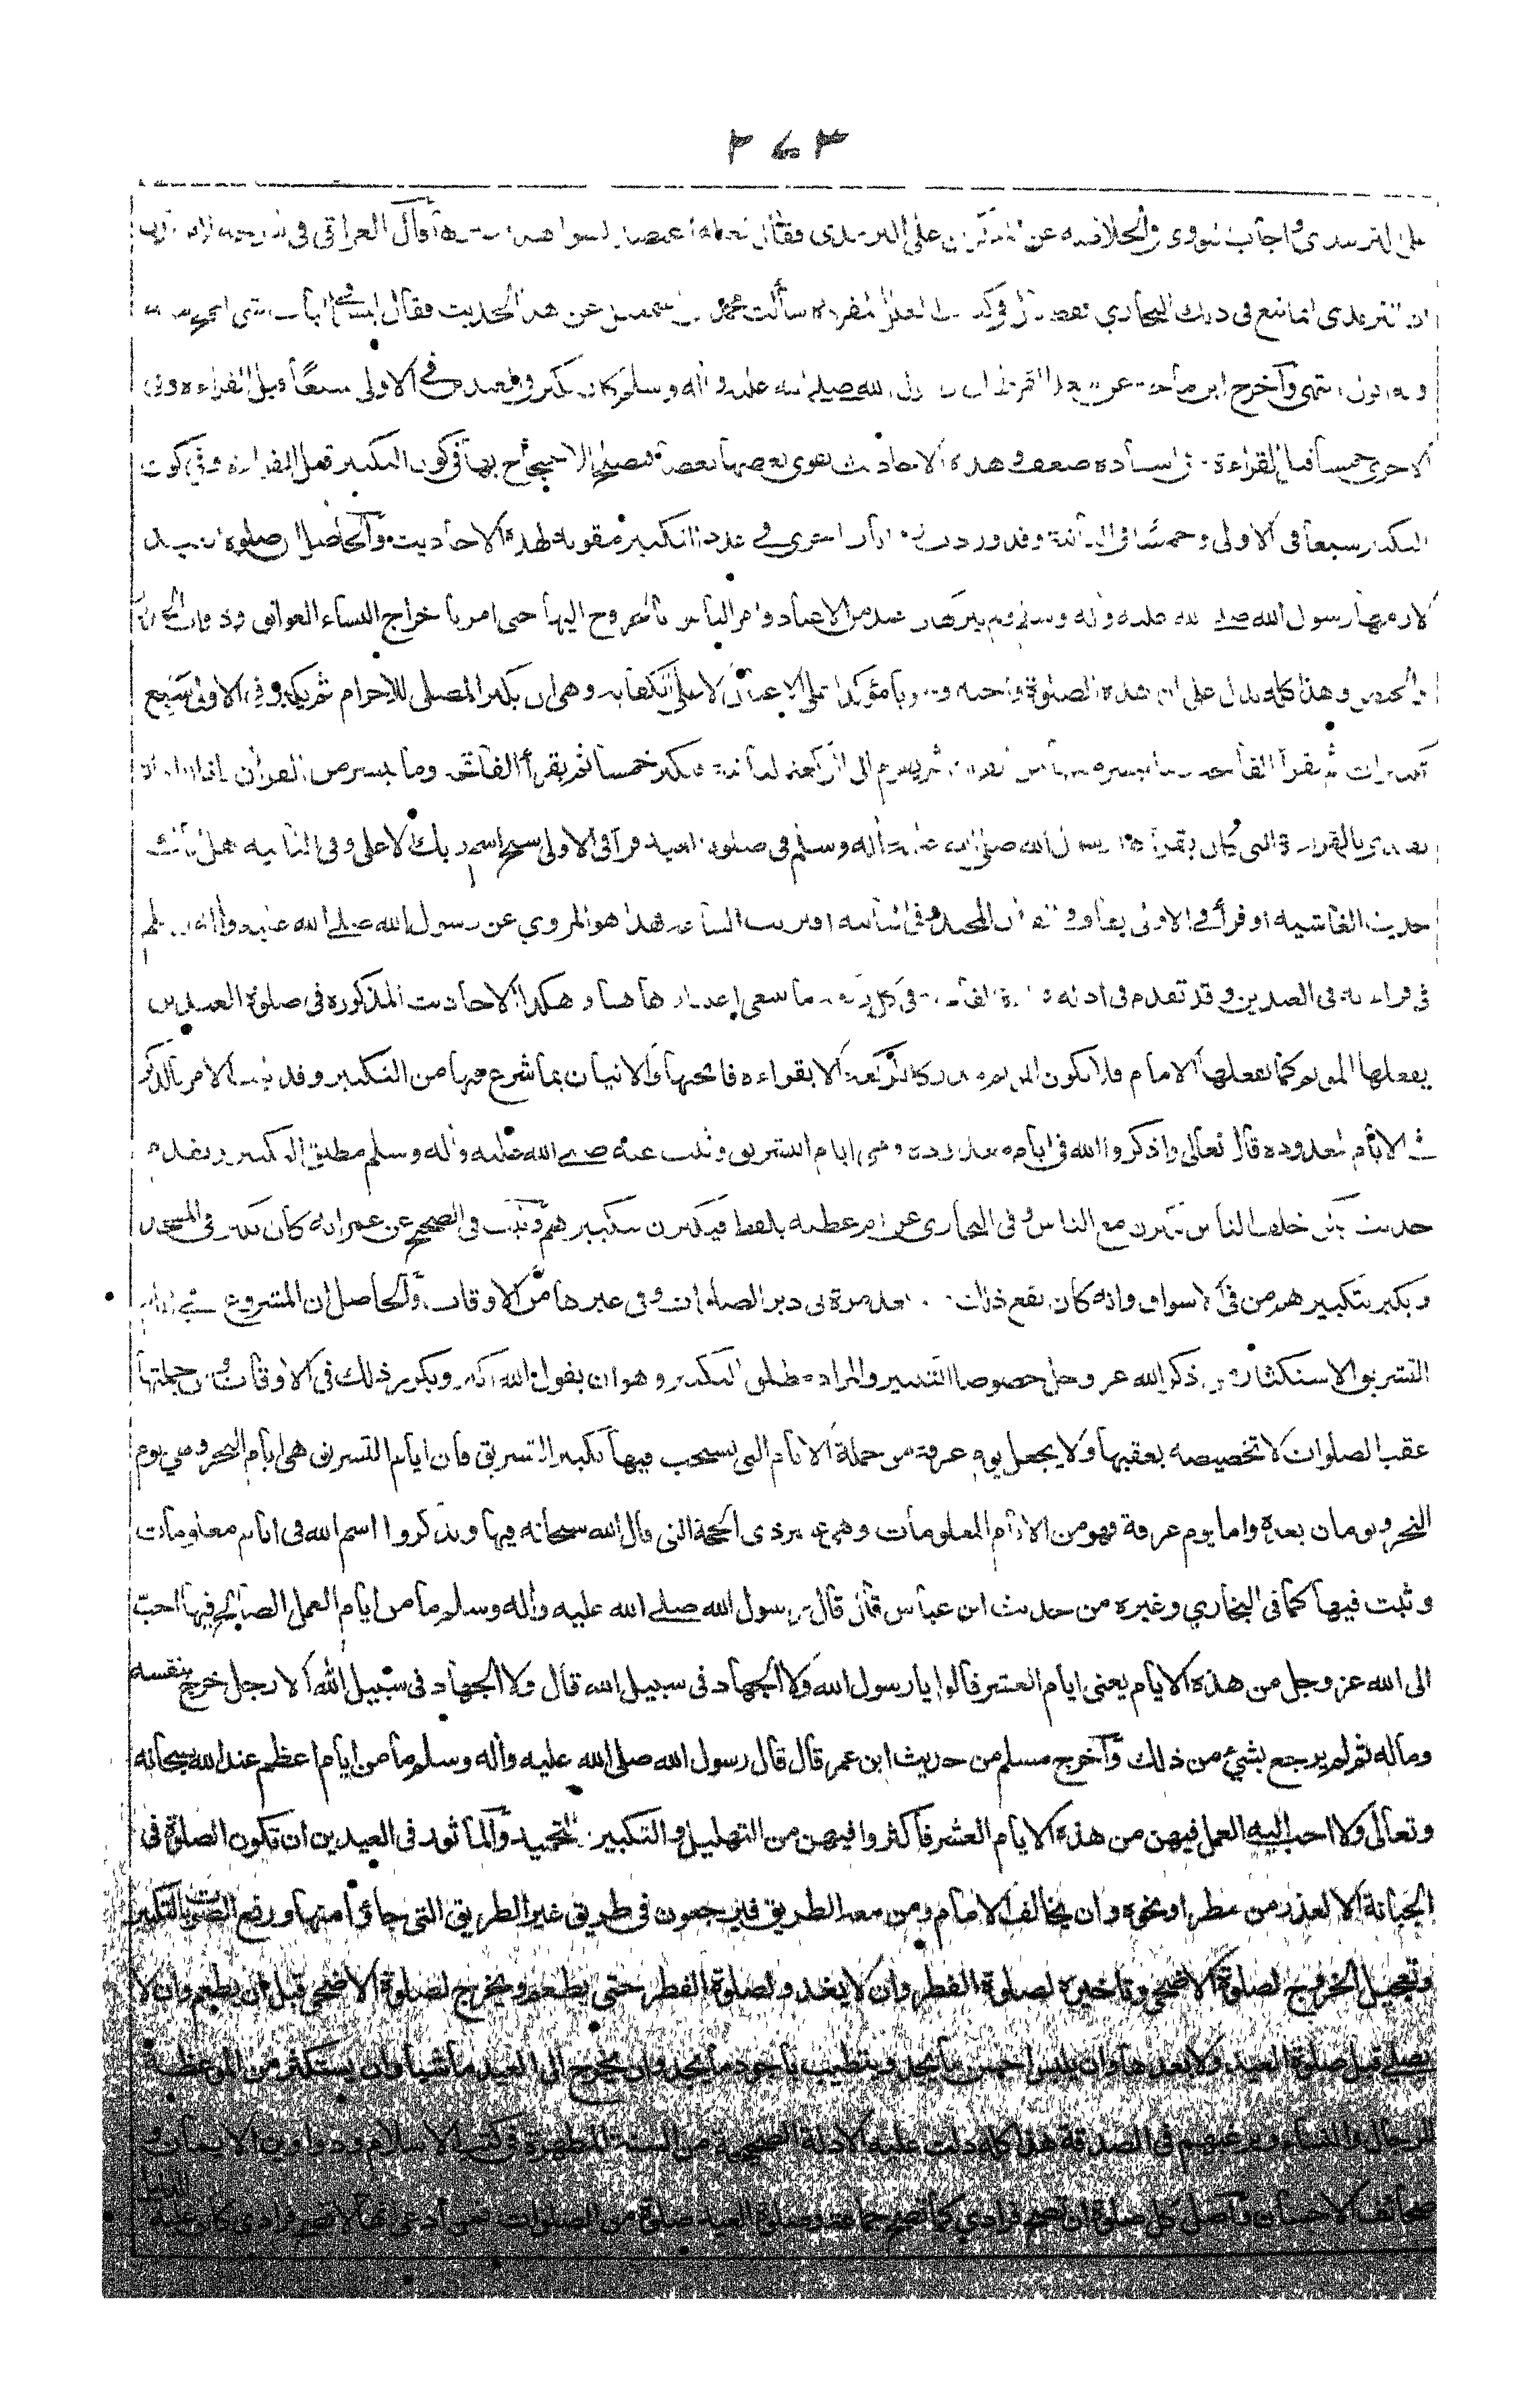 على الترمذي واجاب النووي في الخلاصة عن على الترمذي فقال لعله اعتضد بشواهد وقال العراقي في
الترمذي انما تبع في ذلك البخاري فقد قال في كتاب العلل المفردة سألت محمد بن اسمعيل عن هذا الحديث فقال ليس في الباب شئ اصح منه
وبه اقول انتهى وآخرج ابن ماجة عن سعد القرظ ان رسول الله صلى الله عليه وآله وسلم كان يكبر في العيدين في الاولى سبعاً قبل القراءة وفي
الاخرى خمسا قبل القراءة وفي اسناده ضعف وهذه الاحاديث يقوى بعضها بعضا فتصلح للاحتجاج بها في كون التكبير قبل القراءة وفي كون
التكبير سبعاً في الاولى وخمسًا في الثانية وقد ورد في عدد التكبير مقوية لهذه الاحاديث والحاصل ان صلوة العيد
لازمها رسول الله صلى الله عليه وآله وسلم ولم يتركها في عيد من الاعياد وامر الناس بالخروج اليها حتى امر باخراج النساء العواتق وذوات الخدور
والحيض وهذا كله يدل على ان هذه الصلوة واجبة وجوبا مؤكدا على الاعيان لا على الكفاية وهى ان يكبر المصلي للاحرام ثم يكبر في الاولى سبع
تكبيرات ثم يقرأ الفاتحة وما تيسر ثم يقوم الى الركعة الثانية فيكبر خمسا ثم يقرأ الفاتحة وما تيسر من القرآن
يقتدي بالقراءة التي كان يقرأها رسول الله صلى الله عليه وآله وسلم في صلوة العيد قرأ في الاولى سبح اسم ربك الاعلى وفي الثانية هل أتاك
حديث الغاشية او قرأ في الاولى بقاف والقرآن المجيد وفي الثانية اقتربت الساعة هذا هو المروي عن رسول الله صلى الله عليه وآله وسلم
في قراءته في العيدين وقد تقدم في ادلة قراءة الفاتحة في كل ركعة ما يغني عن اعادتها هنا وهكذا الاحاديث المذكورة في صلوة العيدين
يفعلها المؤتم كما يفعلها الامام فلا يكون المؤتم مدركا للركعة الا بقراءة فاتحتها والاتيان بما شرع فيها من التكبير وقد ثبت الامر بالذكر
في الايام المعدودة قال تعالى واذكروا الله في ايام معدودة وهي ايام التشريق وثبت عنه صلى الله عليه وآله وسلم مطلق التكبير وتقدم
حديث يكن خلف الناس يكبرن مع الناس وفي البخاري عن ام عطية بلفظ فيكبرن بتكبيرهم وثبت في الصحيح عن عمر انه كان يكبر في المسجد
ويكبر بتكبيره من في الاسواق وانه كان يقع ذلك في دبر الصلوات وفي غيرها من الاوقات والحاصل ان المشروع في ايام
التشريق الاستكثار من ذكر الله عز وجل خصوصا التكبير والمراد مطلق التكبير وهو ان يقول الله اكبر ويكرر ذلك في الاوقات ومن جملتها
عقب الصلوات لا تخصيصه بعقبها ولا يجعل يوم عرفة من جملة الايام التي يستحب فيها تكبير التشريق فان ايام التشريق هى ايام النحر وهي يوم
النحر ويومان بعده واما يوم عرفة فهو من الايام المعلومات وهي عشر ذي الحجة التي قال الله سبحانه فيها ويذكروا اسم الله في ايام معلومات
وثبت فيها كما في البخاري وغيره من حديث ابن عباس قال قال رسول الله صلى الله عليه وآله وسلم ما من ايام العمل الصالح فيها احبّ
الى الله عز وجل من هذه الايام يعني ايام العشر فقالوا يا رسول الله ولا الجهاد في سبيل الله قال ولا الجهاد في سبيل الله الا رجل خرج بنفسه
وماله ثم لم يرجع بشئ من ذلك وآخرج مسلم من حديث ابن عمر قال قال رسول الله صلى الله عليه وآله وسلم ما من ايام اعظم عند الله سبحانه
وتعالى ولا احب اليه العمل فيهن من هذه الايام العشر فاكثروا فيهن من التهليل والتكبير والتحميد والمأثور في العيدين ان تكون الصلوة في
الجبانة الا لعذر من مطر او نحوه وان يخالف الامام ومن معه الطريق فيرجعون في طريق غير الطريق التي جاؤا منها ورفع الصوت بالتكبير
وتعجيل الخروج لصلوة الاضحى وتاخيره لصلوة الفطر وان لا يغدو لصلوة الفطر حتى يطعم ويخرج لصلوة الاضحى قبل ان يطعم وان لا
يصلي قبل صلوة العيد ولا بعدها وان يلبس احسن ما يجد ويتطيب باجود ما يجد وان يخرج الى العيد ماشيا وان يستكثر من الموعظة
للرجال والنساء ويرغبهم في الصدقة هذا كله دلت عليه الادلة الصحيحة من السنة المطهرة في كتب الاسلام ودواوين الايمان و
صحائف الاحسان وآصل كل صلوة ان تصح فرادى كما تصح جماعة وصلوة العيد صلوة من الصلوات فمن أدعى انها لا تصح فرادى كان عليه الدليل